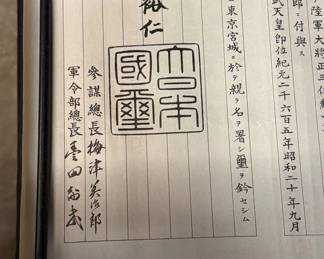 陸軍大將正三位
郎ニ付與ス
武天皇即位紀元二千六百五年昭和二十年九月
東京宮城ニ於テ親ラ名ヲ署シ璽ヲ鈐セシム
裕仁
大日本國璽
參謀總長梅津美治郎
軍令部總長豊田副武